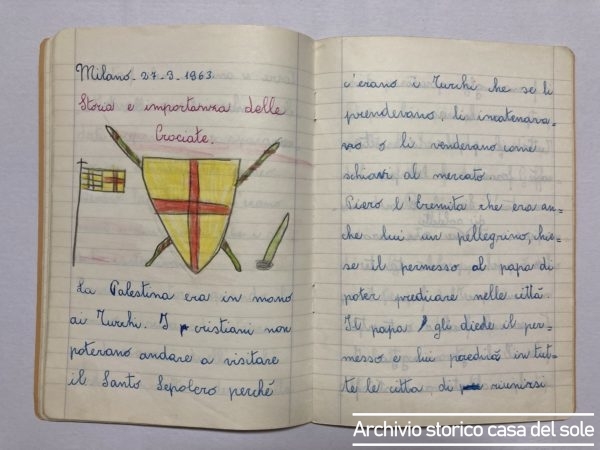 Milano - 27-3-1963
Storia e importanza delle
Crociate.
La Palestina era in mano
ai Turchi. I cristiani non
poterano andare a visitare
il Santo Sepolcro perché
c'erano i Turchi che se li
prenderano, li incatenara-
no o li venderano come
schiavi al mercato
Piero l'Eremita che era an=
che lui un pellegrino, chie=
se il permesso al papa di
poter predicare nelle città.
Il papa gli diede il per=
messo e lui predicò in tut=
te le città, di riunirsi
Archivio storico casa del sole